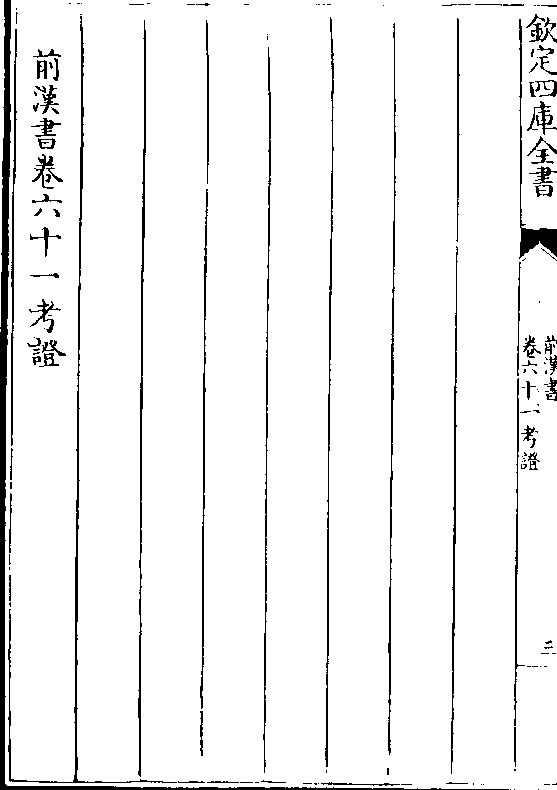 欽定四庫全書
前漢書
卷六十一考證
三
前漢書卷六十一考證